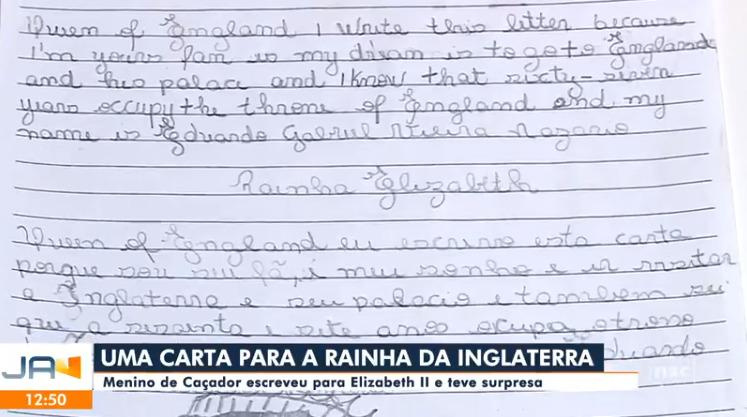 Queen of England I write this letter because
I'm yours fan is my dream is to go to England
and his palace and I know that sixty-seven
years occupy the throne of England and my
name is Eduardo Gabriel Vieira Nazario
Rainha Elizabeth
Queen of England eu escrevo esta carta
porque sou seu fã, é meu sonho e ir visitar
a Inglaterra e seu palacio e tambem sei
que a sessenta e sete anos ocupa o trono
Eduardo
JA
UMA CARTA PARA A RAINHA DA INGLATERRA
Menino de Caçador escreveu para Elizabeth II e teve surpresa
12:50
nsc